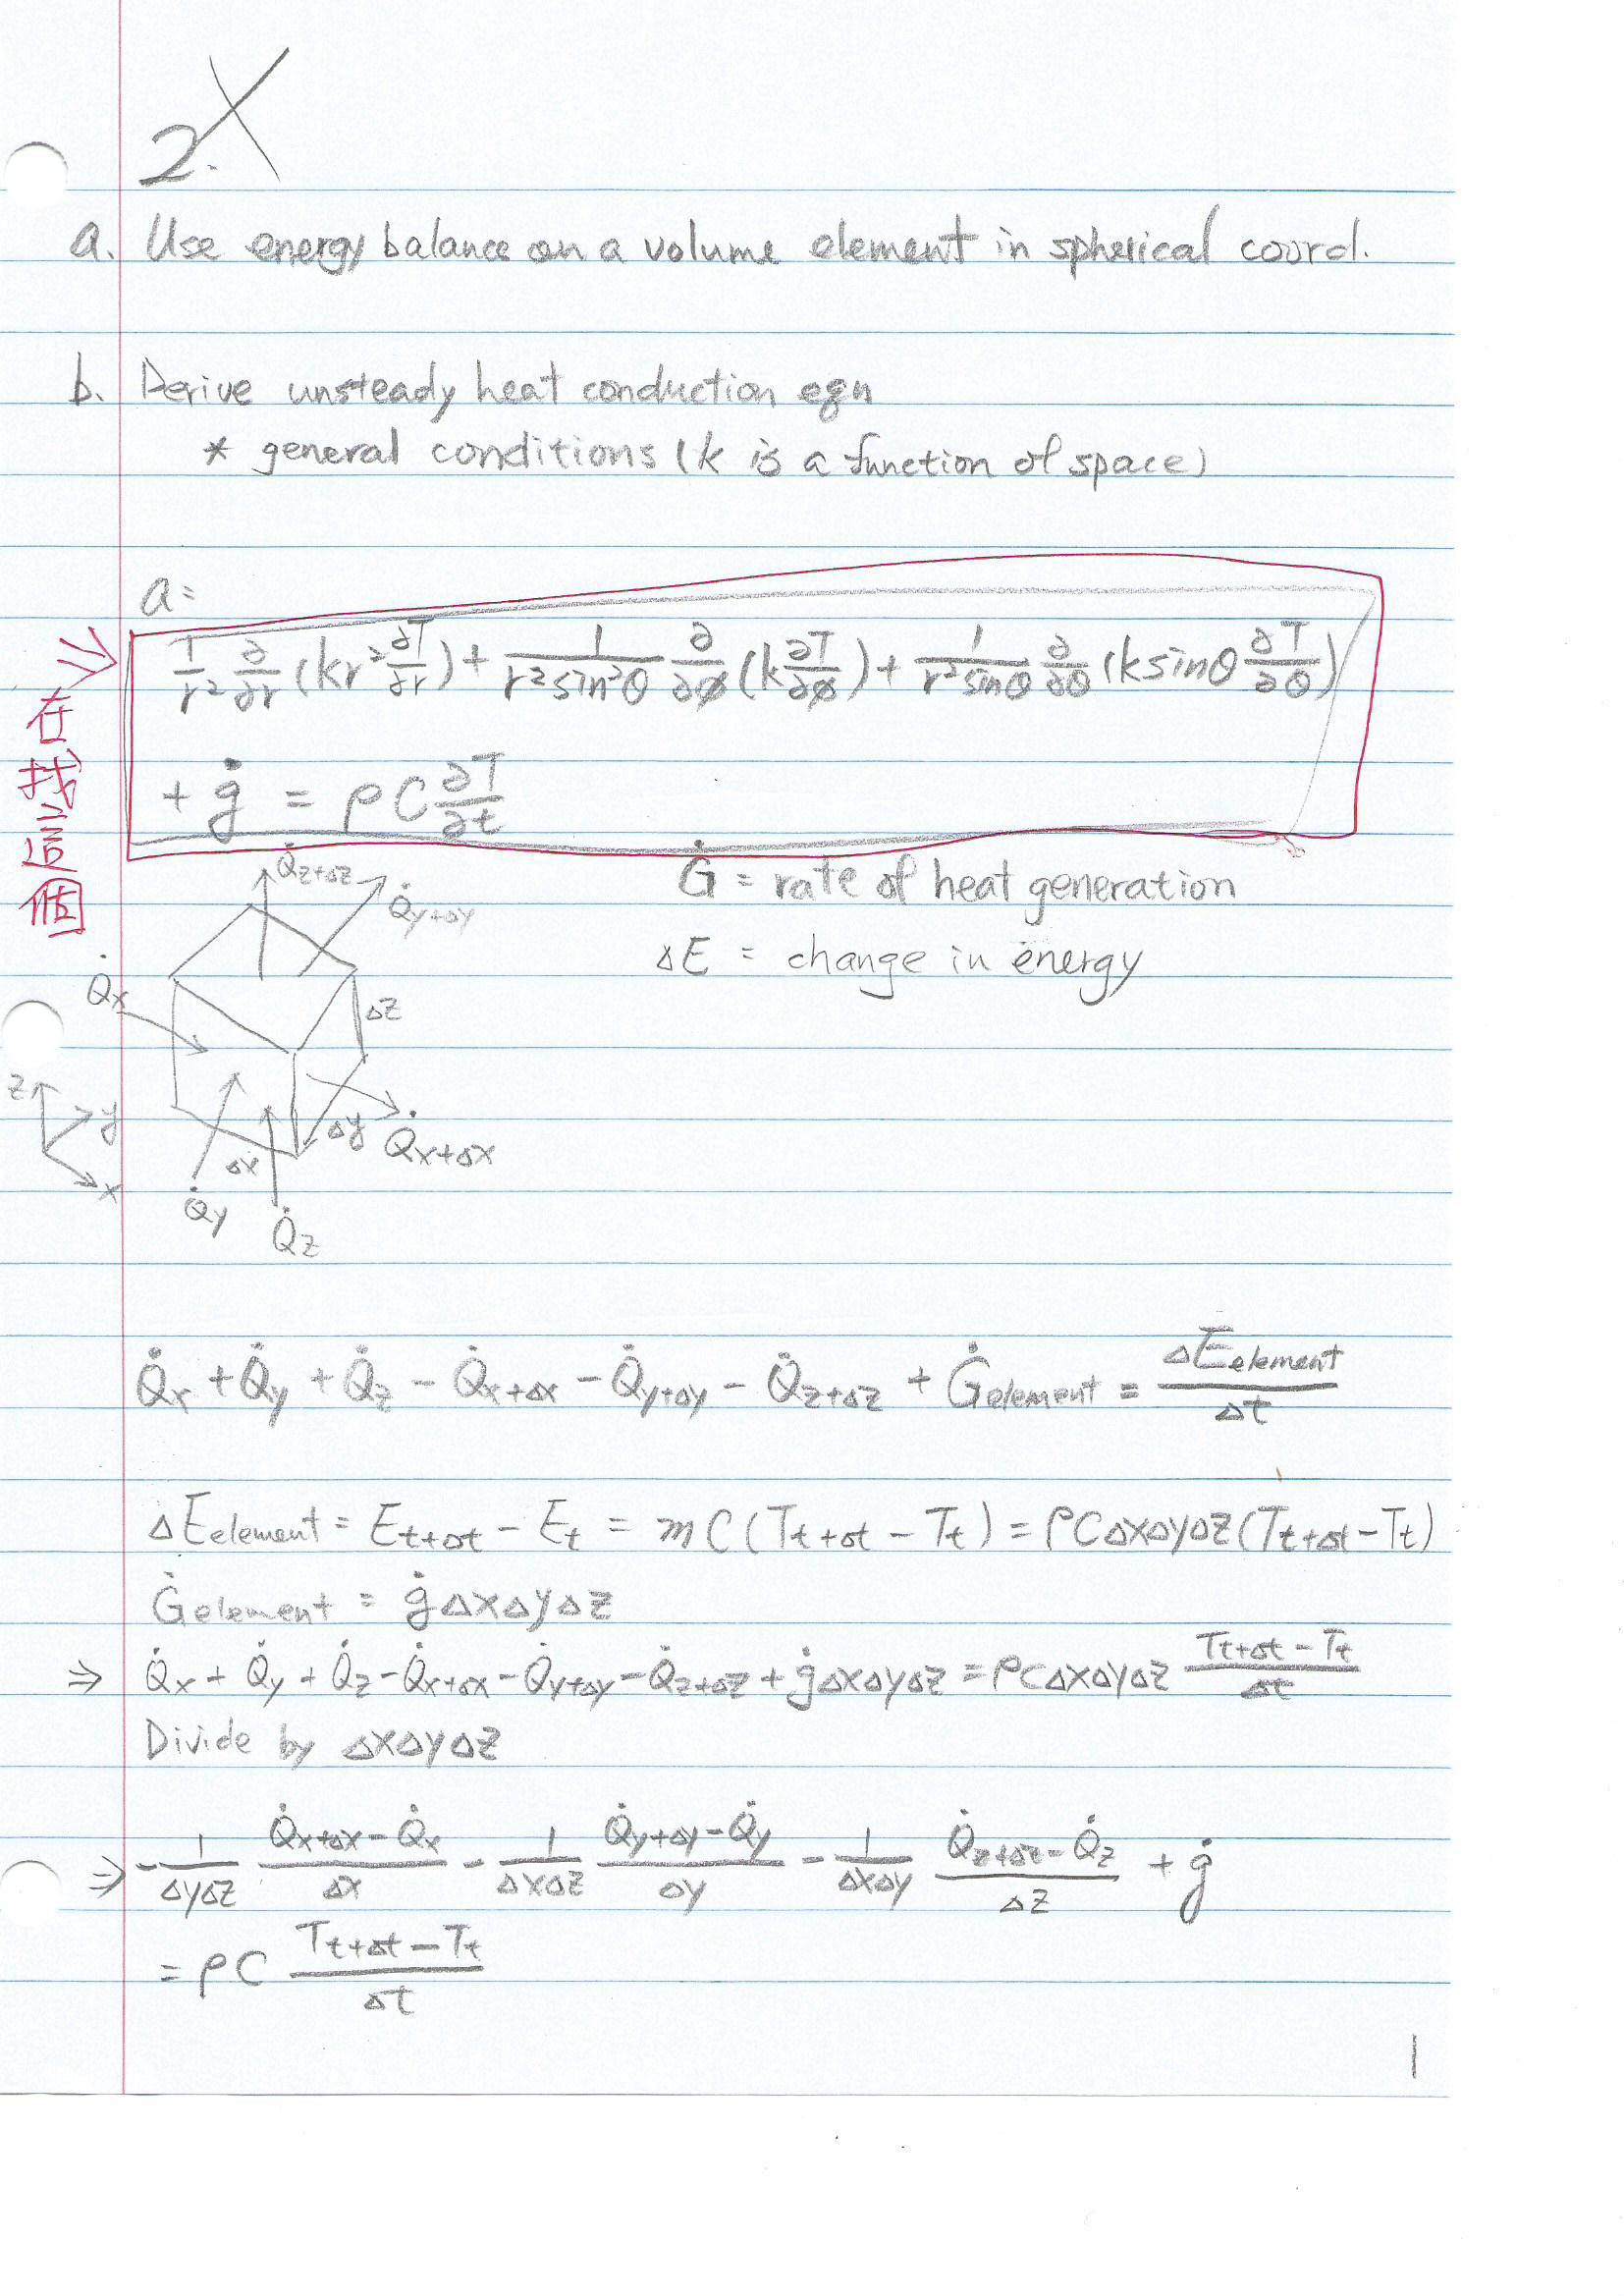 2.
a. Use energy balance on a volume element in spherical coord.
b. Derive unsteady heat conduction eqn
* general conditions (k is a function of space)
a:
1/r² ∂/∂r (kr² ∂T/∂r) + 1/(r² sin²θ) ∂/∂ø (k ∂T/∂ø) + 1/(r² sinθ) ∂/∂θ (k sinθ ∂T/∂θ)
+ ġ = ρC ∂T/∂t
在找這個
Ġ = rate of heat generation
ΔE = change in energy
Q̇z+Δz
Q̇y+Δy
Q̇x
Δz
z
y
x
Δy
Δx
Q̇x+Δx
Q̇y
Q̇z
Q̇x + Q̇y + Q̇z − Q̇x+Δx − Q̇y+Δy − Q̇z+Δz + Ġelement = ΔEelement/Δt
ΔEelement = Et+Δt − Et = mC(Tt+Δt − Tt) = ρCΔxΔyΔz(Tt+Δt − Tt)
Ġelement = ġΔxΔyΔz
⇒ Q̇x + Q̇y + Q̇z − Q̇x+Δx − Q̇y+Δy − Q̇z+Δz + ġΔxΔyΔz = ρCΔxΔyΔz (Tt+Δt − Tt)/Δt
Divide by ΔxΔyΔz
⇒ − 1/(ΔyΔz) (Q̇x+Δx − Q̇x)/Δx − 1/(ΔxΔz) (Q̇y+Δy − Q̇y)/Δy − 1/(ΔxΔy) (Q̇z+Δz − Q̇z)/Δz + ġ
= ρC (Tt+Δt − Tt)/Δt
1